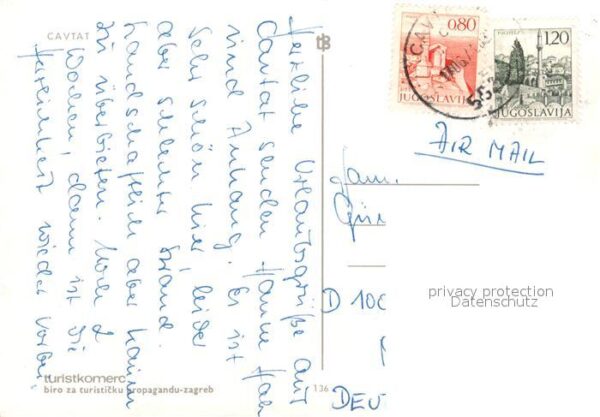 CAVTAT
Herzliche Urlaubsgrüße aus
Cavtat senden Hanne
und Anhang. Es ist
sehr schön hier, leider
aber schlechter Strand.
Landschaftlich aber kaum
zu überbieten. Noch 2
Wochen, dann ist die
wieder vorbei.
turistkomerc
biro za turističku propagandu-zagreb
136
0.80
JUGOSLAVIJA
1.20
JUGOSLAVIJA
CAV
AIR MAIL
Fam.
D 100
DEU
privacy protection
Datenschutz